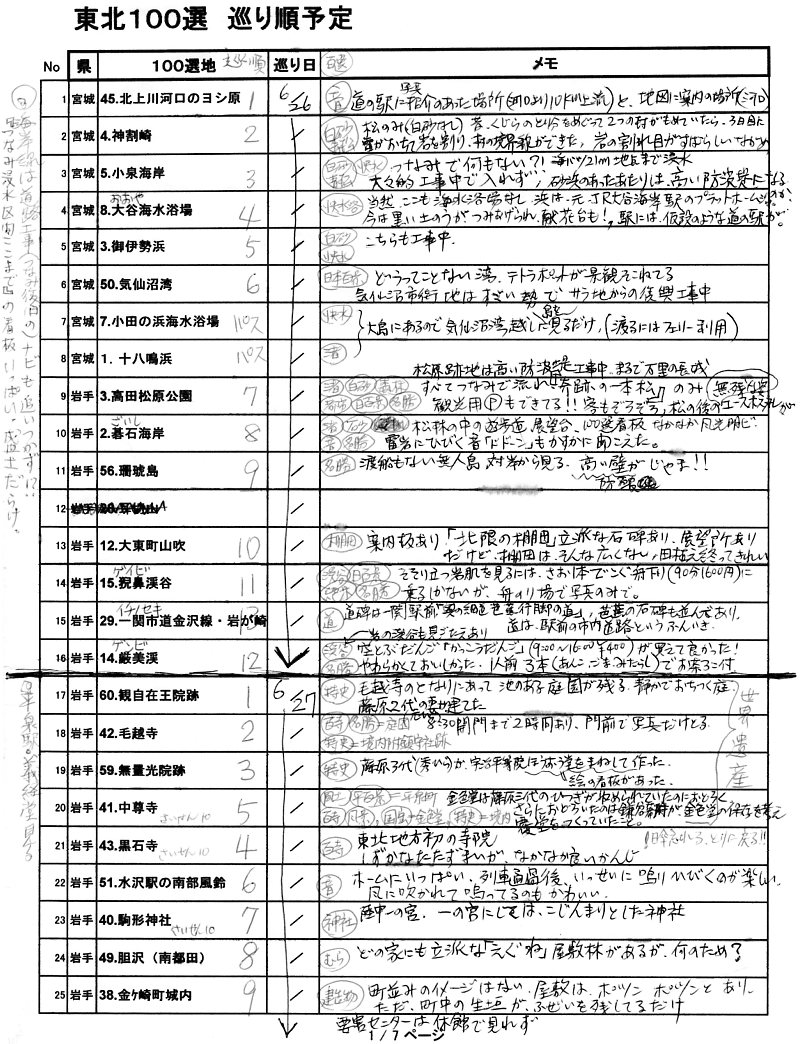 東北100選 巡り順予定
No 県 100選地 巡り順 巡り日 百選 メモ
1 宮城 45.北上川河口のヨシ原 1 6/26 音 道の駅に写真紹介のあった場所(河口より10km上流)と、地図に案内の場所(河口)
2 宮城 4.神割崎 2 〃 松のみ(白砂なし) 昔、くじらのとり分をめぐって2つの村がもめていたら、3日目に
雷がおちて岩を割り、村の境界線ができた。岩の割れ目がすばらしいながめ
3 宮城 5.小泉海岸 3 つなみで何もない?! 海バツ21m地区まで浸水
大々的工事中で入れず、砂浜のあったあたりは、高い防波堤になる
4 宮城 8.大谷海水浴場 おおや 4 快水浴 当然、ここも海水浴場なし 浜は、元、JR大谷海岸駅のプラットホーム
今は黒い土のうがつみあげられ、献花台も!、駅には、仮設のような道の駅が。
5 宮城 3.御伊勢浜 5 白砂 快水 こちらも工事中.
6 宮城 50.気仙沼湾 6 日本百景 どうってことない湾、テトラポットが景観をこわしてる
気仙沼市街地はすごい勢いで サラ地からの復興工事中
7 宮城 7.小田の浜海水浴場 パス 快水
8 宮城 1.十八鳴浜 パス 渚
大島にあるので気仙沼湾越しに見るだけ,(渡るにはフェリー利用)
松原跡地は高い防波堤工事中.まるで万里の長城
9 岩手 3.高田松原公園 7 渚 白砂 すべてつなみで流れ「奇跡の一本松」のみ 無残
観光用Ⓟもできてる!!
10 岩手 2.碁石海岸 ごいし 8 松林の中の遊歩道、展望台、100選看板 なかなか風光明ビ
雷岩にひびく音「ドドーン」もかすかに聞こえた。
11 岩手 56.珊琥島 9 名勝 渡船もない無人島 対岸から見る、高い壁がじゃま!!
12 岩手
13 岩手 12.大東町山吹 10 棚田 案内板あり「北限の棚田」立派な石碑あり、展望所あり
だけど、棚田は、そんな広くない,田植え終ってきれい
14 岩手 15.猊鼻渓谷 ゲイビ 11 そそり立つ岩肌を見るには、さお1本でこぐ舟下り(90分1600円)に
乗るしかないが、舟のり場で写真のみで。
15 岩手 29.一関市道金沢線・岩が崎 イチノセキ 13 道 道碑は一関駅前「奥の細道芭蕉行脚の道」,芭蕉の石碑も並んであり、
道は、駅前の市内道路というふんいき.
岩の渓谷も見ごたえあり
16 岩手 14.厳美渓 ゲンビ 12 名勝 空とぶだんご「かっこうだんご」(9:00〜16:00 ¥400)が買えて良かった!
やわらかくておいしかった. 1人前3本(あんこ・ごま・みたらし)でお茶2コ付
17 岩手 60.観自在王院跡 1 6/27 特史 毛越寺のとなりにあって 池のある庭園が残る、静かでおちつく庭
藤原2代の妻が建てた
18 岩手 42.毛越寺 2 百寺 名勝=庭園 8:30開門まで2時間あり、門前で写真だけとる.
特史=境内附鎮守社跡
19 岩手 59.無量光院跡 3 特史 藤原3代(秀ひら)が、宇治平等院をまねして作った.
絵の看板があった.
20 岩手 41.中尊寺 さいせん10 5 平百景=平泉町 金色堂は藤原三代のひつぎが収められていたのにおどろく
百寺 国宝=金色堂 特史=境内 さらにおどろいたのは鎌倉幕府が、金色堂の保存を考え
覆堂をつくっていたこと。
21 岩手 43.黒石寺 さいせん10 4 百寺 東北地方初の寺院
しずかなたたずまいが、なかなか良いかんじ
22 岩手 51.水沢駅の南部風鈴 6 音 ホームにいっぱい、列車通過後、いっせいに鳴りひびくのが楽しい.
風に吹かれて鳴ってるのもかわいい.
23 岩手 40.駒形神社 さいせん10 7 神社 陸中一の宮. 一の宮にしては、こじんまりとした神社
24 岩手 49.胆沢(南都田) 8 むら どの家にも立派な「えぐね」屋敷林があるが、何のため?
25 岩手 38.金ケ崎町城内 9 建造物 町並みのイメージはない.屋敷は、ポツン ポツンとあり.
ただ、町中の生垣が、ふぜいを残してるだけ
要害センターは休館で見れず
1/7ページ
世界遺産
海岸線は道路工事(つなみ後旧のナビも追いつかず!?
つなみ浸水区間ここまでの看板!!いっぱい、盛土だらけ。
平泉駅・義経堂見る